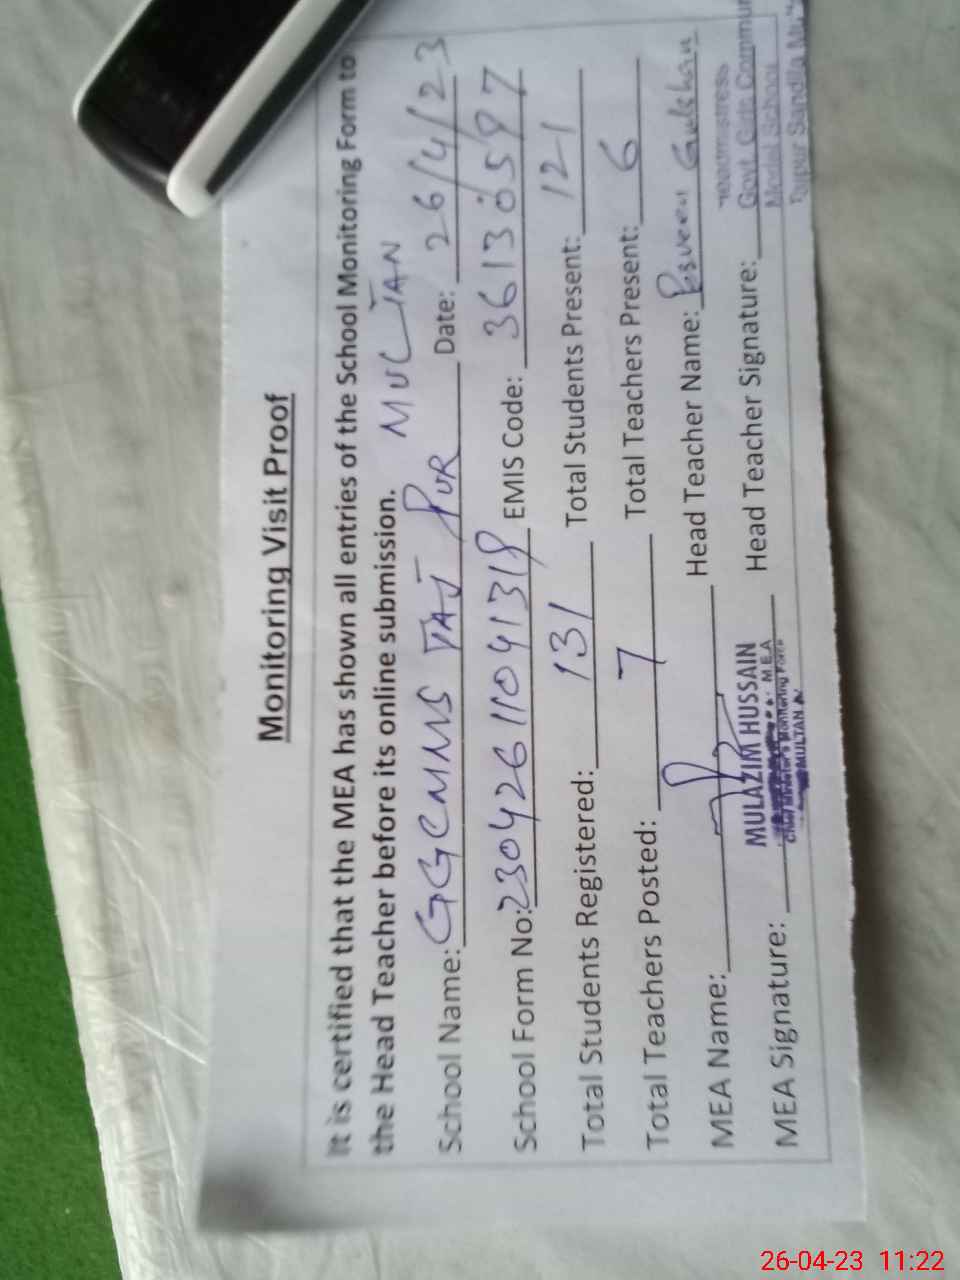 Monitoring Visit Proof
It is certified that the MEA has shown all entries of the School Monitoring Form to
the Head Teacher before its online submission.
School Name: GGCMMS TAJ PUR MULTAN Date: 26/4/23
School Form No: 23042611041318 EMIS Code: 36130597
Total Students Registered: 131 Total Students Present: 121
Total Teachers Posted: 7 Total Teachers Present: 6
MEA Name: Head Teacher Name: Perveen Gulshan
MULAZIM HUSSAIN
M.E.A
Chief Minister's Monitoring Force
MULTAN
MEA Signature: Head Teacher Signature:
Headmistress
Govt. Girls Commun
Model School
Tajpur Sandila
26-04-23 11:22